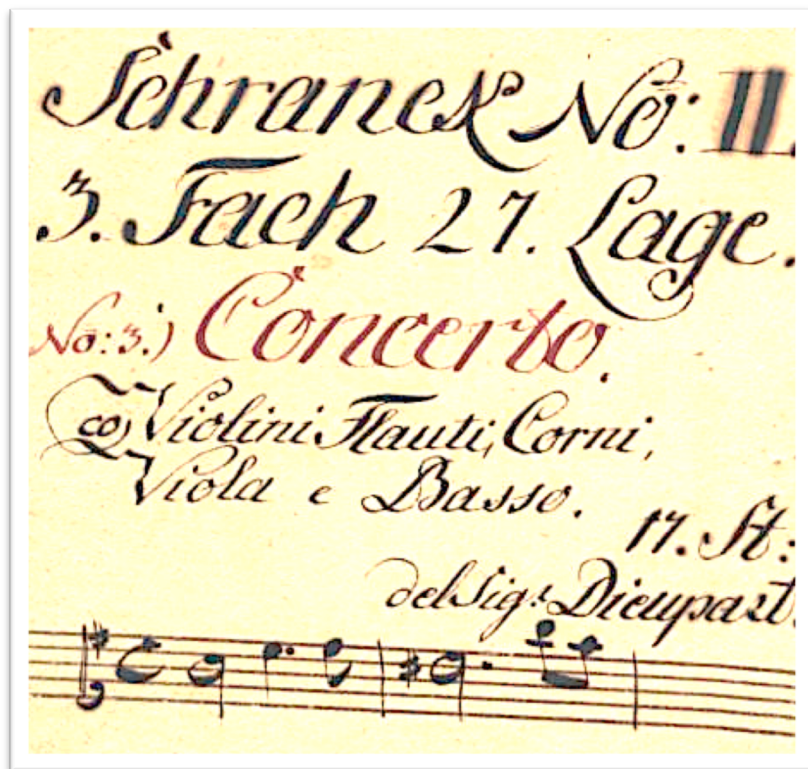 Schranck No: II.
3. Fach 27. Lage.
No: 3.) Concerto.
co Violini Flauti, Corni,
Viola e Basso.
17. St:
del Sig.r Dieupart.